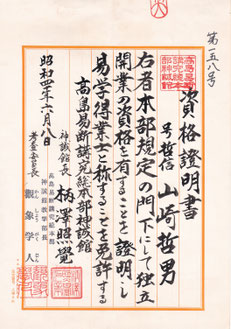 第一五八号
資格證明書
号 哲信 山崎哲男
右者本部規定の門下にして独立
開業の資格を有することを證明し
易学得業士と称することを免許する
高島易断講究総本部神誠館
神誠館長 柄澤照覚
昭和四年六月八日
高島易断講究総本部